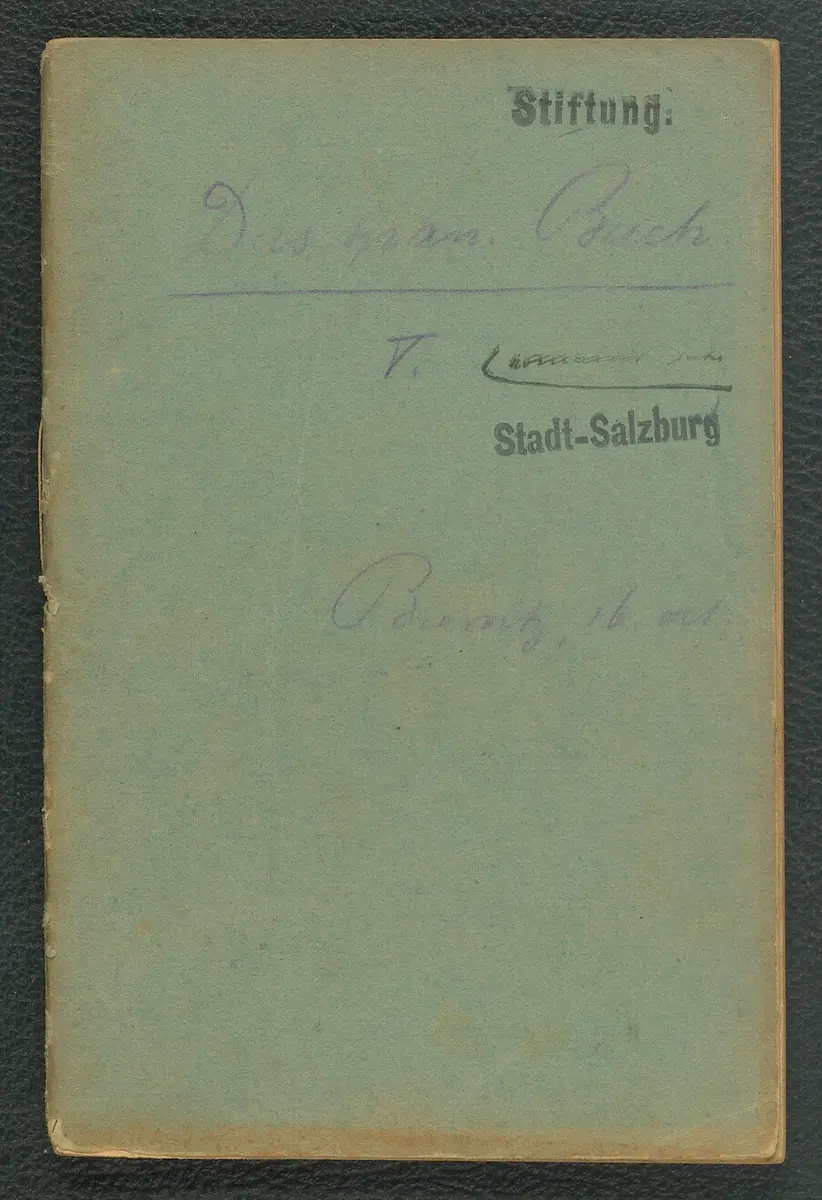 Stiftung:
Das span. Buch.
V.
Stadt-Salzburg
16. oct.